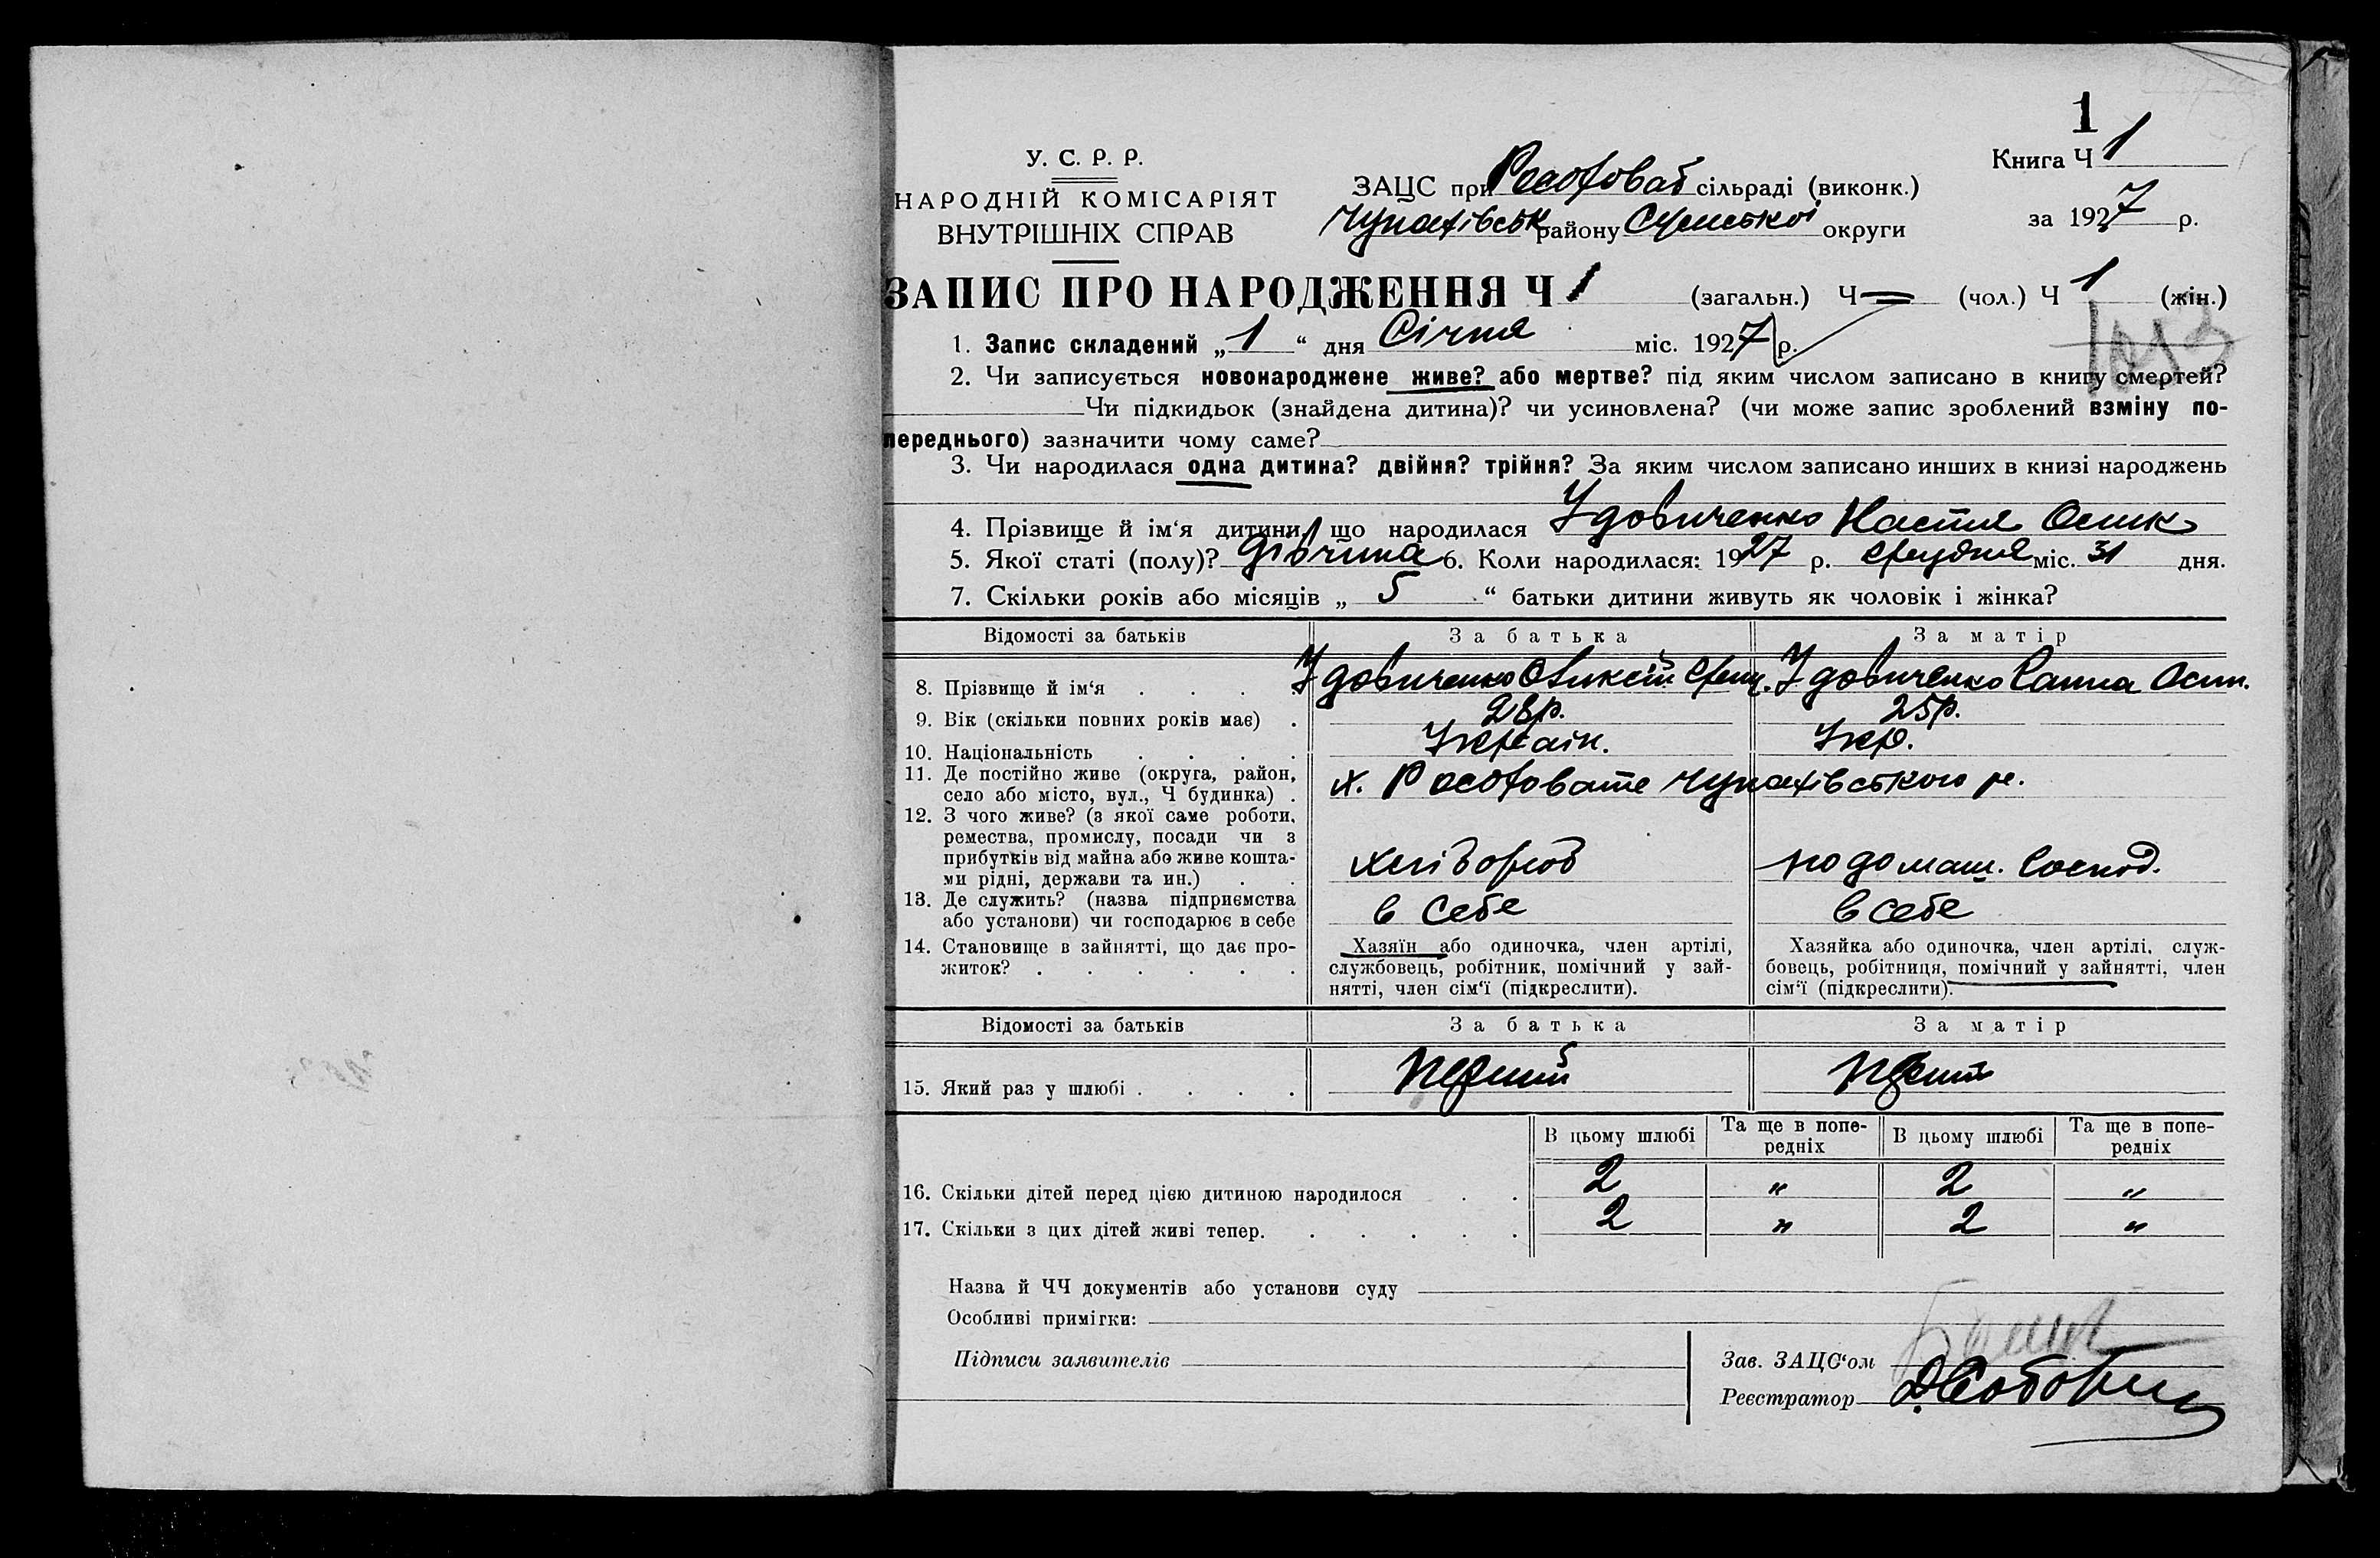 1
У. С. Р. Р.
НАРОДНІЙ КОМІСАРІЯТ
ВНУТРІШНІХ СПРАВ
ЗАЦС при сільраді (виконк.)
Чупахівськ району Сумської округи
Книга Ч 1
за 1927 р.
ЗАПИС ПРО НАРОДЖЕННЯ Ч 1 (загальн.) Ч = (чол.) Ч 1 (жін.)
1. Запис складений „ 1 “ дня Січня міс. 1927 р.
2. Чи записується новонароджене живе? або мертве? під яким числом записано в книгу смертей?
Чи підкидьок (знайдена дитина)? чи усиновлена? (чи може запис зроблений взміну по-
переднього) зазначити чому саме?
3. Чи народилася одна дитина? двійня? трійня? За яким числом записано инших в книзі народжень
4. Прізвище й ім‘я дитини, що народилася Удовиченко Настя
5. Якої статі (полу)? дівчина 6. Коли народилася: 1927 р. грудня міс. 31 дня.
7. Скільки років або місяців „ 5 “ батьки дитини живуть як чоловік і жінка?
Відомості за батьків За батька За матір
8. Прізвище й ім‘я . . . . Удовиченко Удовиченко Ганна
9. Вік (скільки повних років має) . 28р. 25р.
10. Національність . . . . Україн. Укр.
11. Де постійно живе (округа, район,
село або місто, вул., Ч будинка) . х. Чупахівського р.
12. З чого живе? (з якої саме роботи,
ремества, промислу, посади чи з
прибутків від майна або живе кошта-
ми рідні, держави та ин.) . . хлібороб по домаш. Господ.
13. Де служить? (назва підприємства
або установи) чи господарює в себе в себе в себе
14. Становище в зайнятті, що дає про-
житок? . . . . . .
Хазяїн або одиночка, член артілі,
службовець, робітник, помічний у зай-
нятті, член сім‘ї (підкреслити).
Хазяйка або одиночка, член артілі, служ-
бовець, робітниця, помічний у зайнятті, член
сім‘ї (підкреслити).
Відомості за батьків За батька За матір
15. Який раз у шлюбі . . . . Перший Перший
В цьому шлюбі Та ще в попе-
редніх В цьому шлюбі Та ще в попе-
редніх
16. Скільки дітей перед цією дитиною народилося . . 2 „ 2 „
17. Скільки з цих дітей живі тепер. . . . . . 2 „ 2 „
Назва й ЧЧ документів або установи суду
Особливі примітки:
Підписи заявителів
Зав. ЗАЦС‘ом
Реєстратор